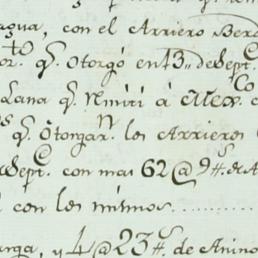 agua, con el Arriero Ber
to qe. Otorgó en 13,, de Septe
Lana qe. Remití á Mexco
qe. Otorgarn los Arrieros
Septe. con mas 62 @ 9 lls. de A
con los mismos
arga, y 4 @ 23 lls. de Anino